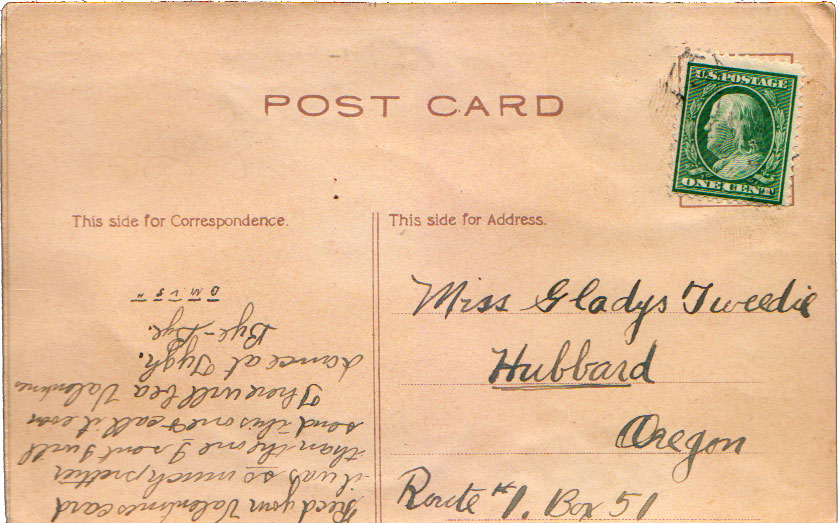 POST CARD
U.S. POSTAGE
ONE CENT
This side for Correspondence.
This side for Address.
Miss Gladys Tweedie
Hubbard
Oregon
Route #1. Box 51
Recd your Valentines card
it was so much prettier
than the one I sent I will
send this one & call it even
There will be a Valentines
dance at Tygh.
Bye-Bye.